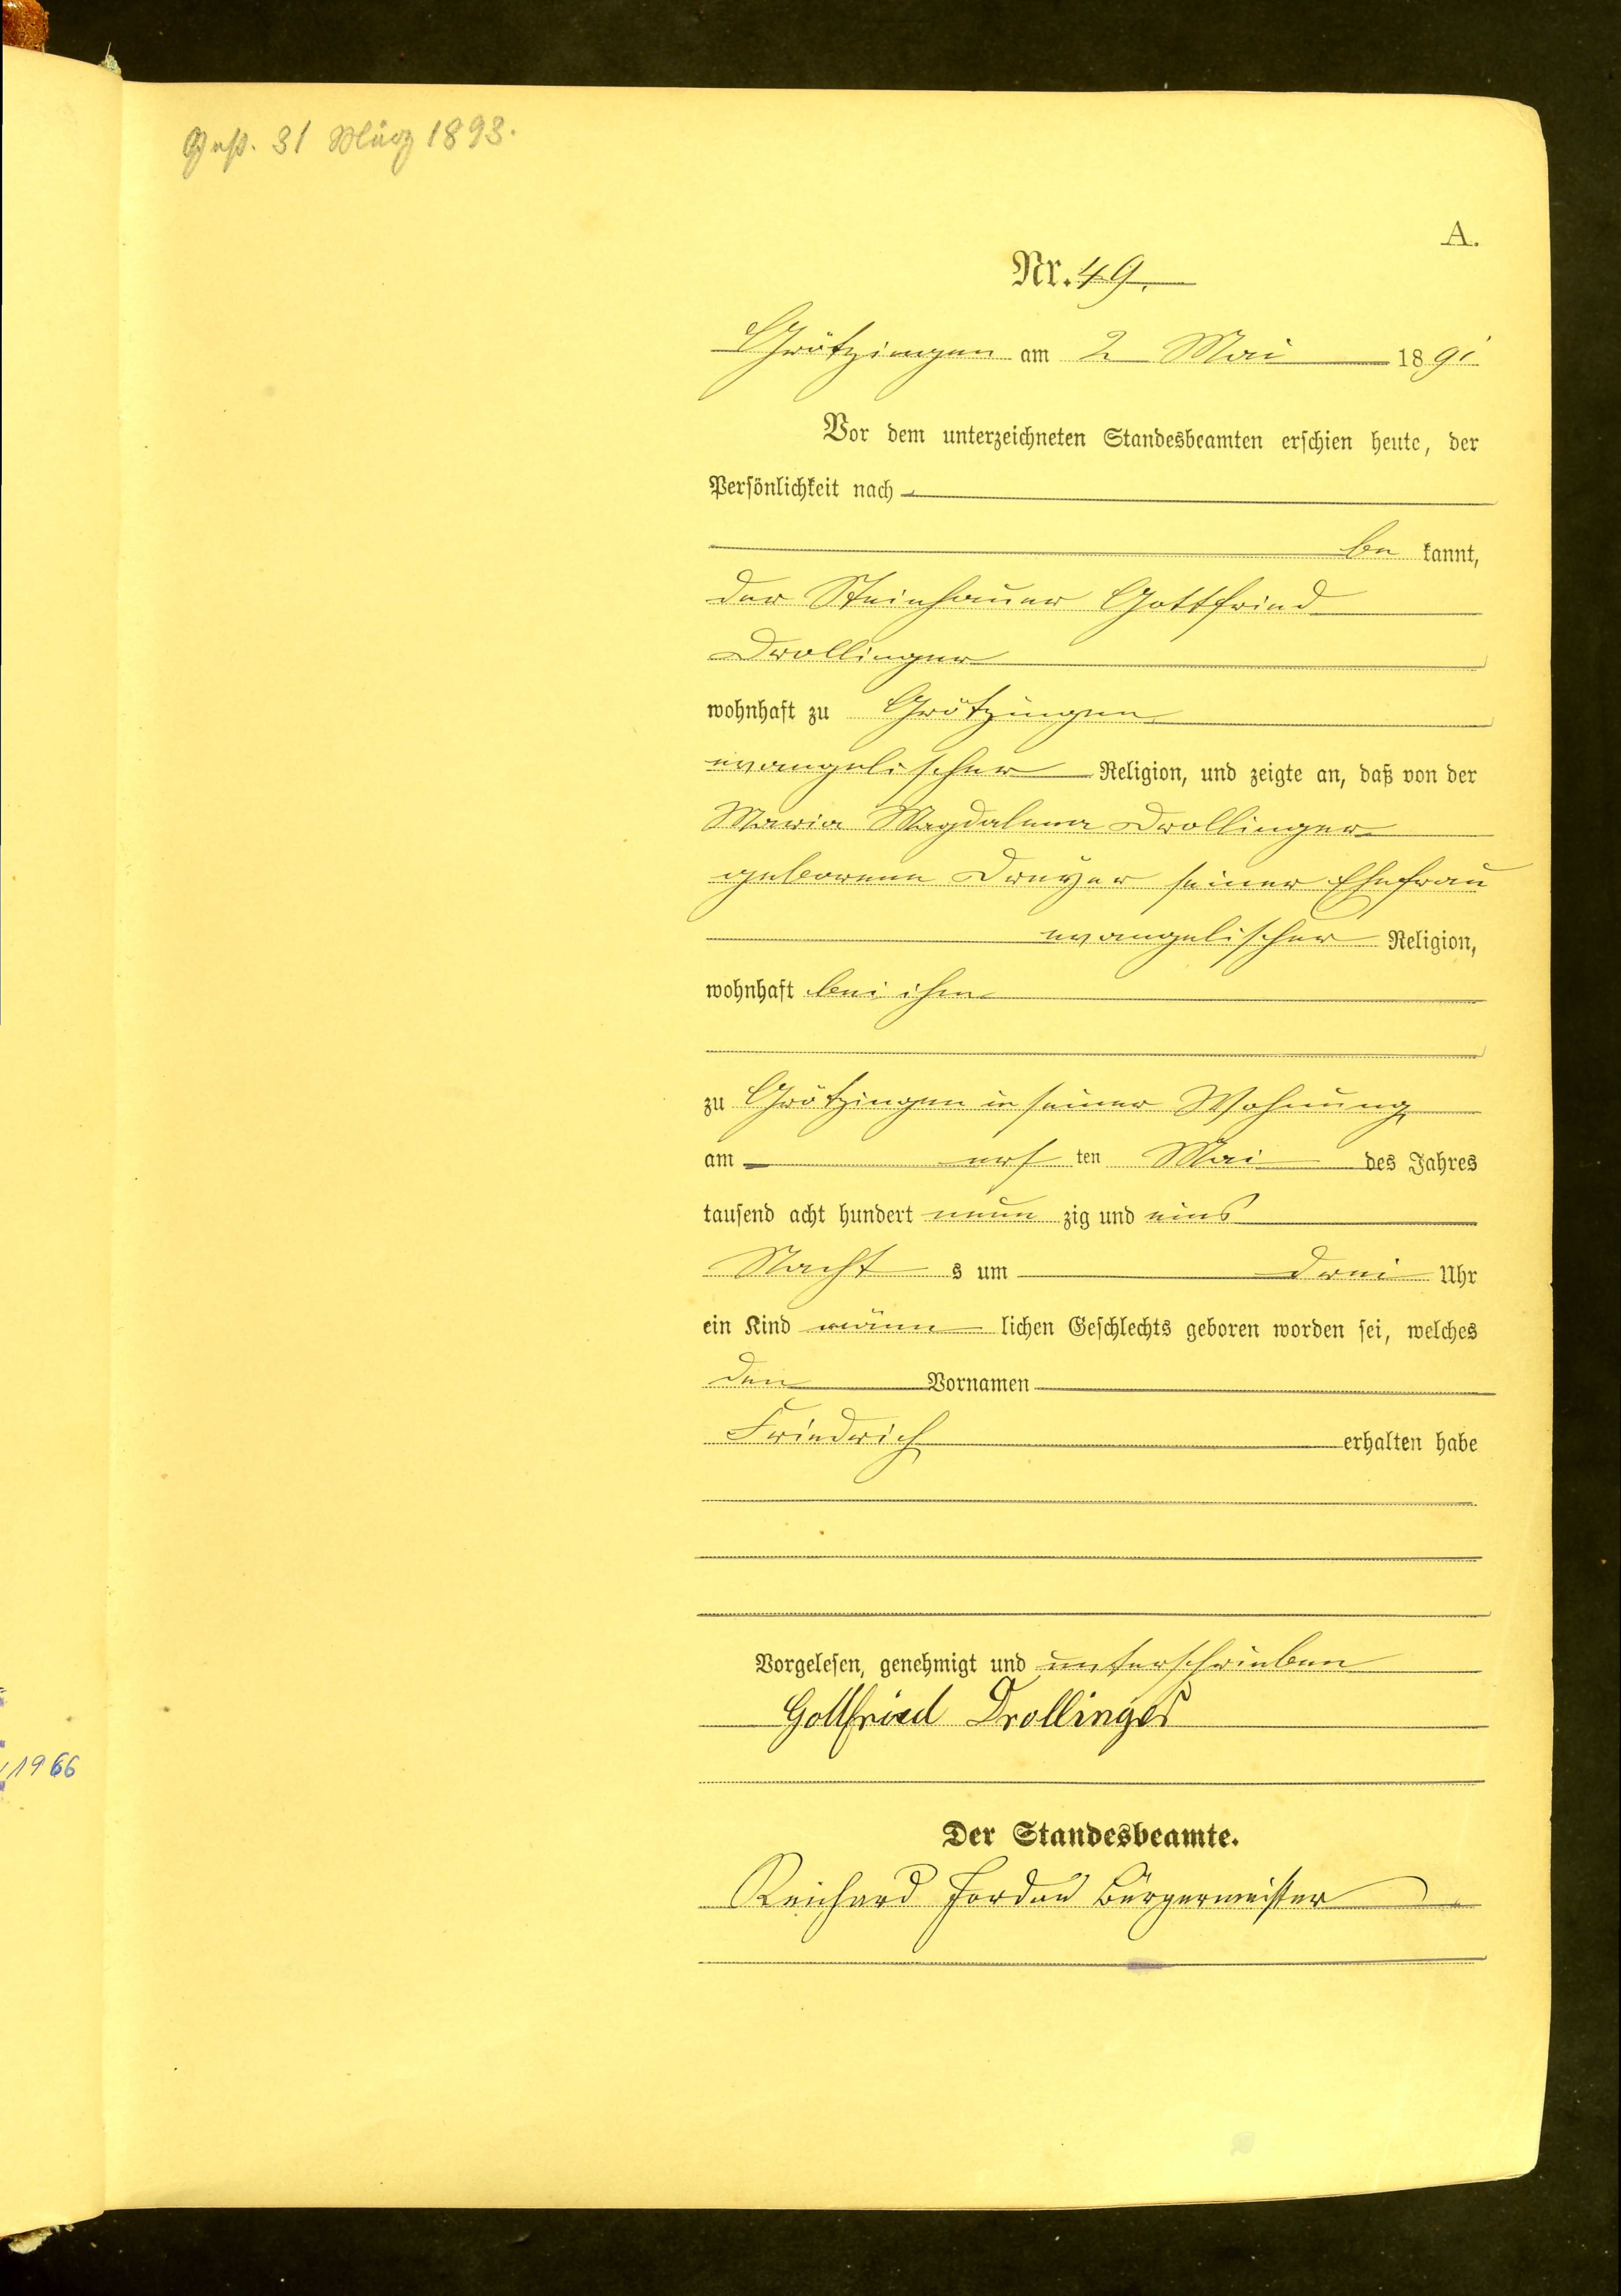 Gest. 31 März 1893.
A.
Nr. 49.
Grötzingen am 2 Mai 1891
Vor dem unterzeichneten Standesbeamten erschien heute, der
Persönlichkeit nach
be kannt,
der Steinhauer Gottfried
Drollinger
wohnhaft zu Grötzingen
evangelischer Religion, und zeigte an, daß von der
Maria Magdalena Drollinger
geborene Dreÿer seiner Ehefrau
evangelischer Religion,
wohnhaft bei ihm
zu Grötzingen in seiner Wohnung
am ers ten Mai des Jahres
tausend acht hundert neun zig und eins
Nacht s um drei Uhr
ein Kind männ lichen Geschlechts geboren worden sei, welches
den Vornamen
Friedrich erhalten habe
Vorgelesen, genehmigt und unterschrieben
Gottfried Drollinger
1966
Der Standesbeamte.
Reichard Jordan Bürgermeister